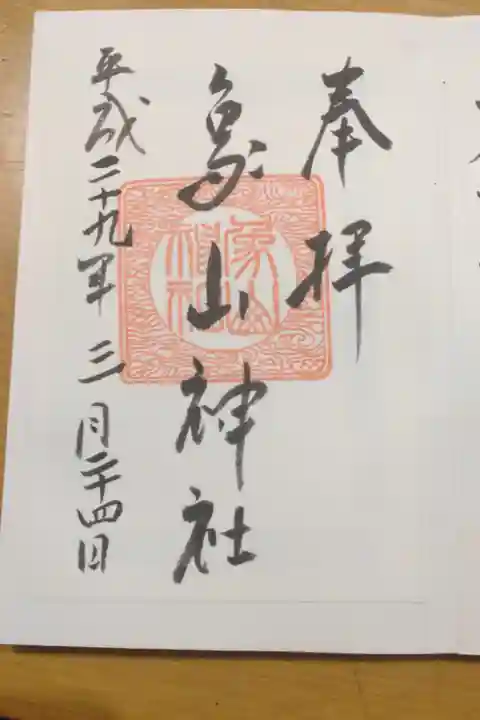 奉拝
象山神社
平成二十九年三月二十四日
象山神社